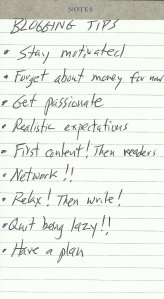 NOTES
BLOGGING TIPS
• Stay motivated
• Forget about money for now
• Get passionate
• Realistic expectations
• First content! Then readers
• Network!!
• Relax! Then write!
• Quit being lazy!!
• Have a plan